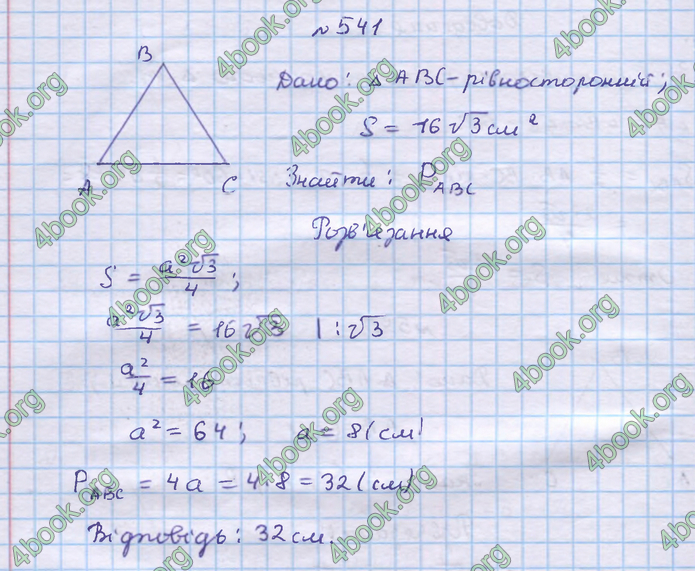 №541
B
Дано: △ABC-рівносторонній;
S = 16√3 см²
A
C
Знайти: P_ABC
Розв'язання
S = a²√3/4 ;
a²√3/4 = 16√3 | :√3
a²/4 = 16
a² = 64; a = 8(см)
P_ABC = 4a = 4·8 = 32(см)
Відповідь: 32 см.
4book.org